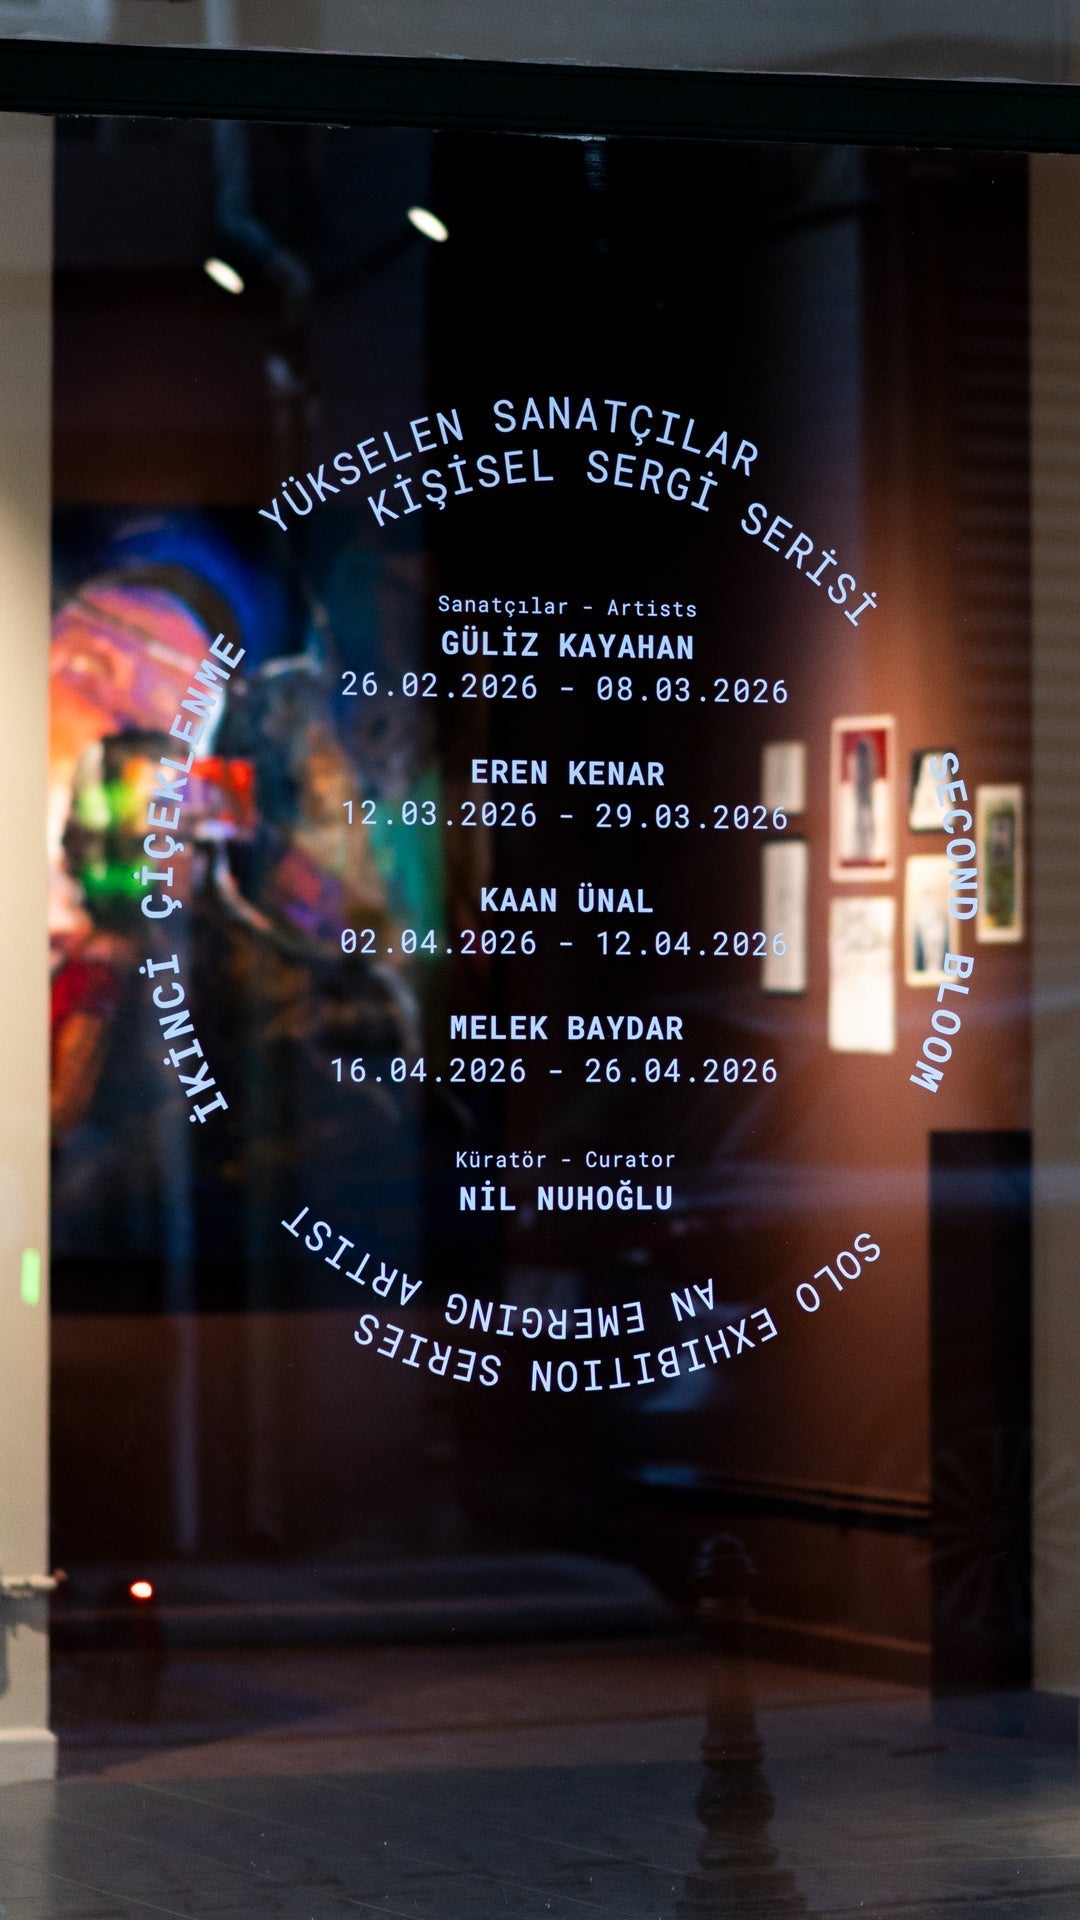 YÜKSELEN SANATÇILAR
KİŞİSEL SERGİ SERİSİ
İKİNCİ ÇİÇEKLENME
Sanatçılar - Artists
GÜLİZ KAYAHAN
26.02.2026 - 08.03.2026
EREN KENAR
12.03.2026 - 29.03.2026
KAAN ÜNAL
02.04.2026 - 12.04.2026
MELEK BAYDAR
16.04.2026 - 26.04.2026
Küratör - Curator
NİL NUHOĞLU
SECOND BLOOM
AN EMERGING ARTIST
SOLO EXHIBITION SERIES